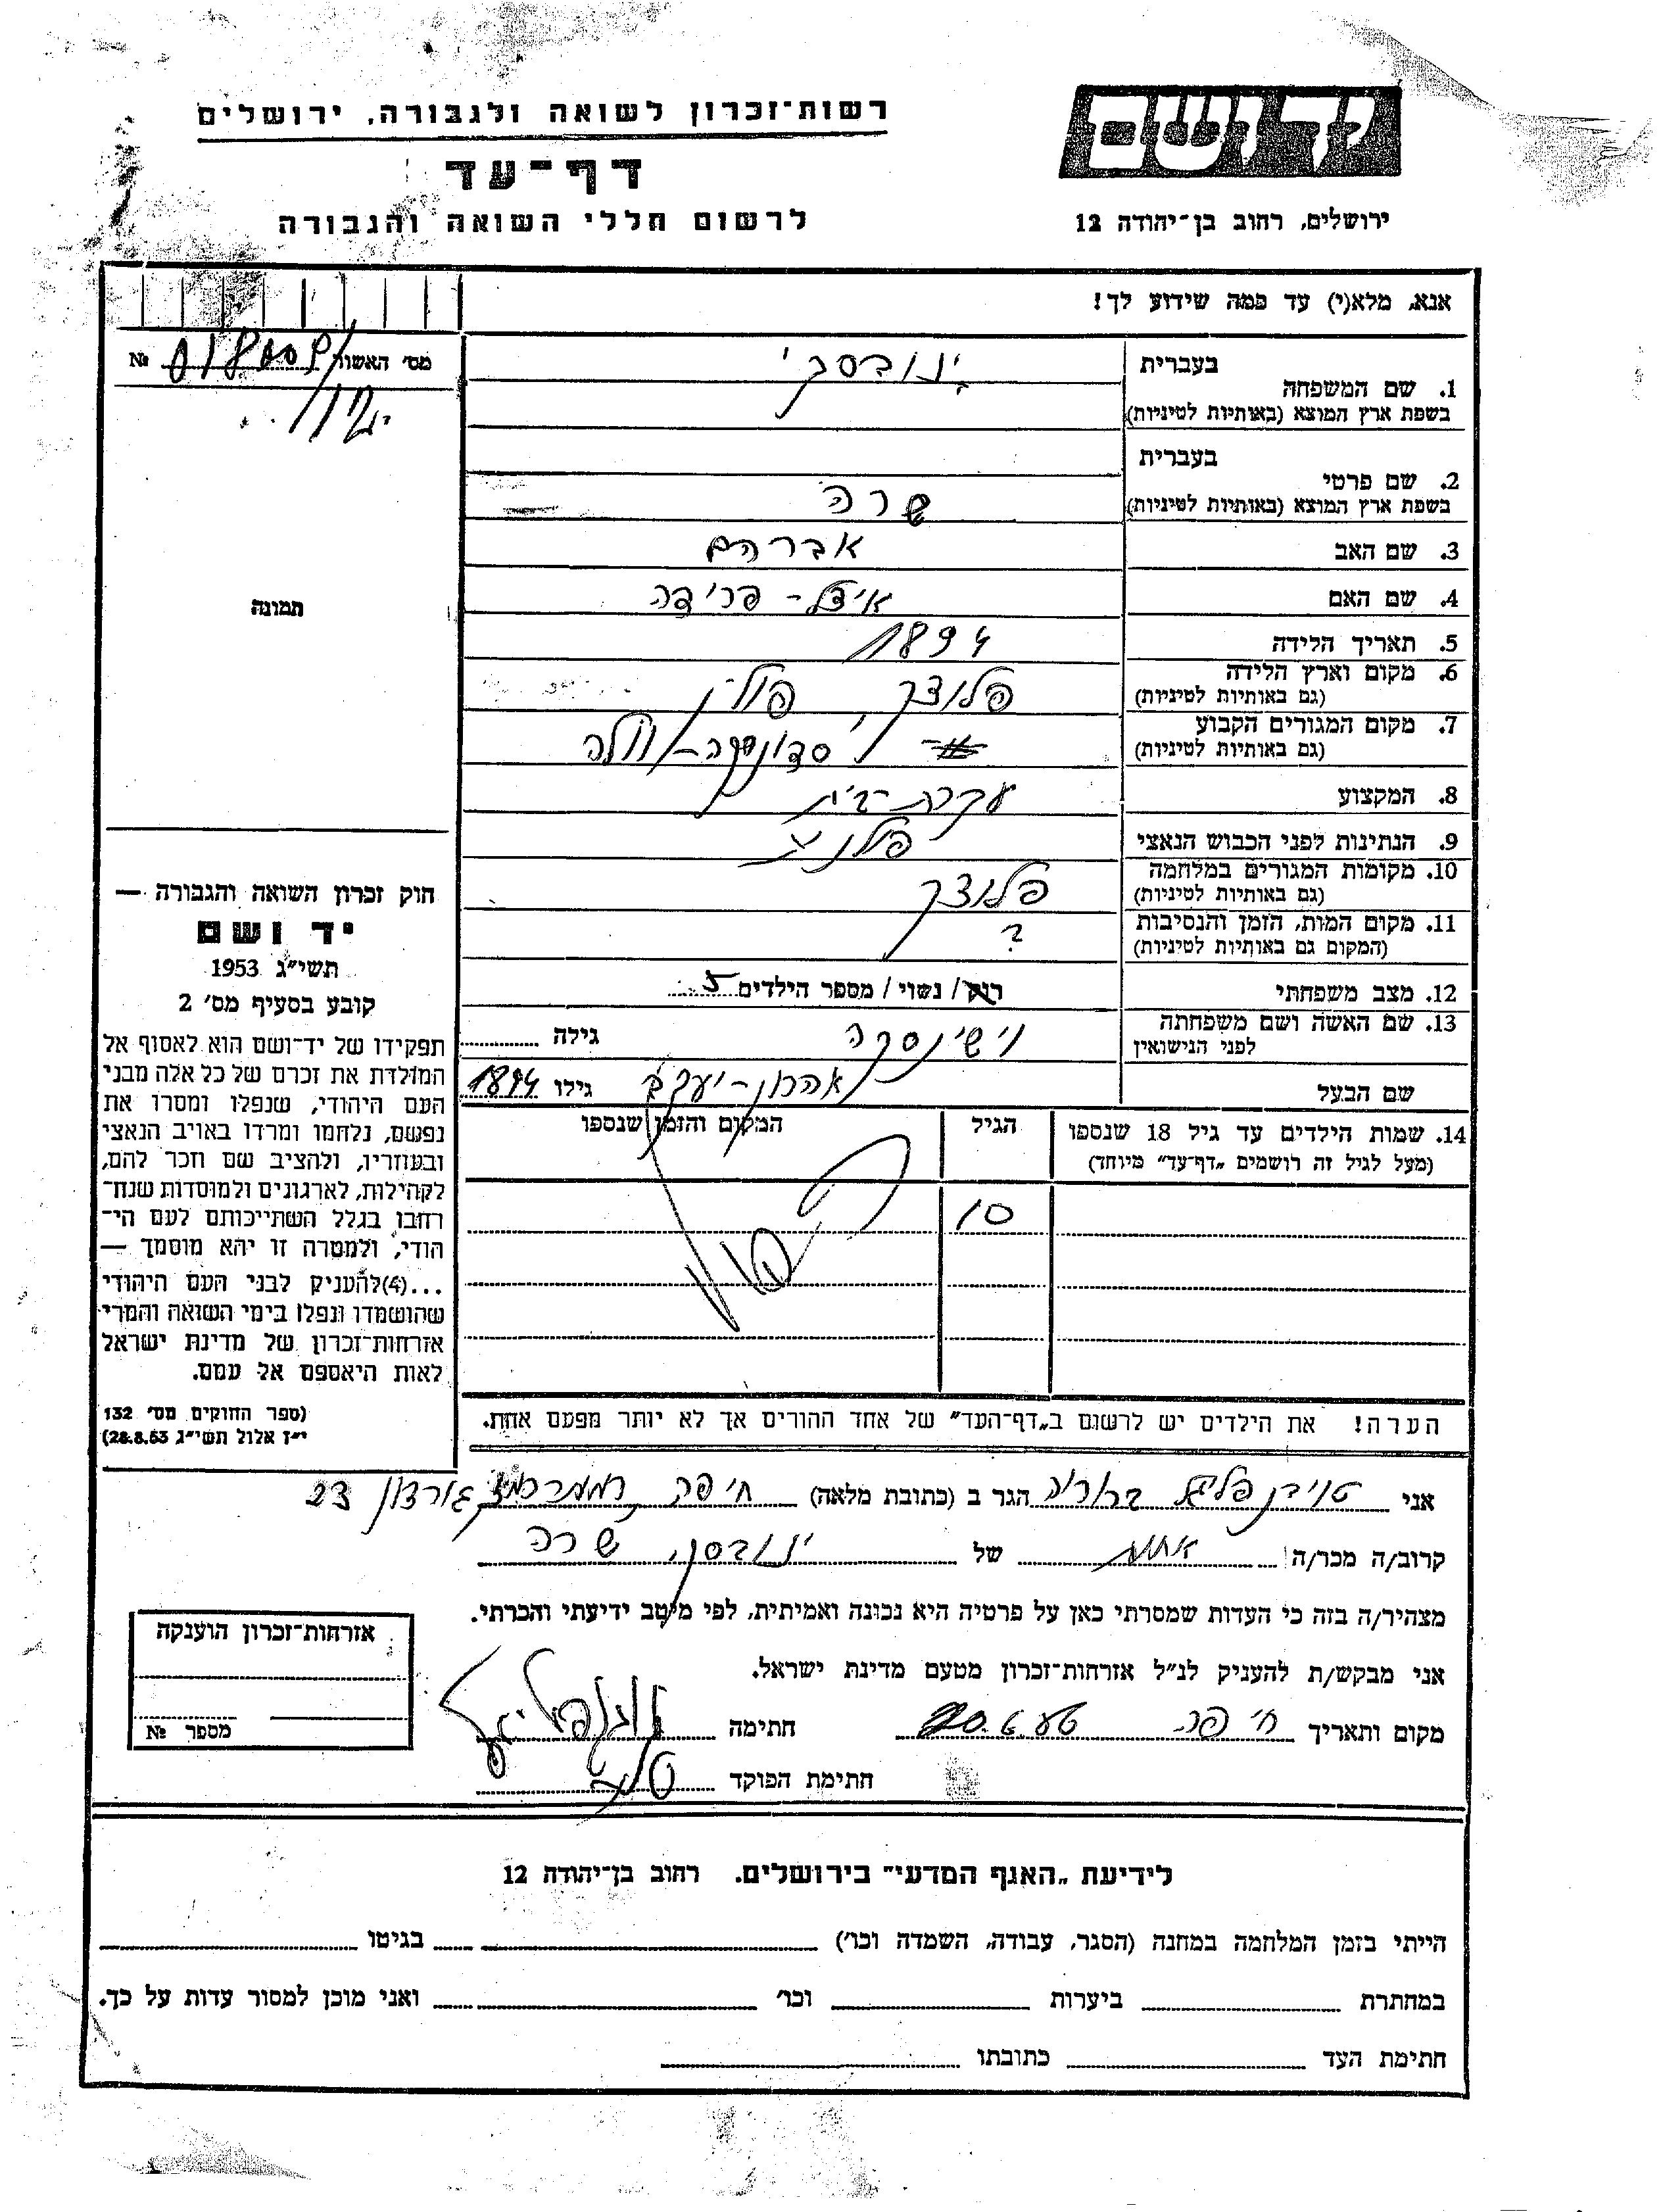 יד ושם
ירושלים, רחוב בן־יהודה 12
רשות־זכרון לשואה ולגבורה, ירושלים
דף־עד
לרשום חללי השואה והגבורה
אנא, מלא(י) עד כמה שידוע לך!
מס׳ האשור № 01800
1. שם המשפחה
בעברית ינובסקי
בשפת ארץ המוצא (באותיות לטיניות)
2. שם פרטי
בעברית
בשפת ארץ המוצא (באותיות לטיניות) שרה
3. שם האב אברהם
4. שם האם איצל - פרידה
5. תאריך הלידה 1894
6. מקום וארץ הלידה פלוצק פולין
(גם באותיות לטיניות)
7. מקום המגורים הקבוע
(גם באותיות לטיניות)
8. המקצוע עקרת-בית
9. הנתינות לפני הכבוש הנאצי
10. מקומות המגורים במלחמה פלוצק
(גם באותיות לטיניות)
11. מקום המות, הזמן והנסיבות ?
(המקום גם באותיות לטיניות)
12. מצב משפחתי רווק / נשוי / מספר הילדים 5
13. שם האשה ושם משפחתה וישינסקה גילה
לפני הנישואין
שם הבעל אהרון-יעקב גילו 1894
14. שמות הילדים עד גיל 18 שנספו הגיל המקום והזמן שנספו
(מעל לגיל זה רושמים „דף־עד” מיוחד)
10
הערה! את הילדים יש לרשום ב„דף־העד” של אחד ההורים אך לא יותר מפעם אחת.
תמונה
חוק זכרון השואה והגבורה —
יד ושם
תשי״ג 1953
קובע בסעיף מס׳ 2
תפקידו של יד־ושם הוא לאסוף אל
המולדת את זכרם של כל אלה מבני
העם היהודי, שנפלו ומסרו את
נפשם, נלחמו ומרדו באויב הנאצי
ובעוזריו, ולהציב שם וזכר להם,
לקהילות, לארגונים ולמוסדות שנח־
רחבו בגלל השתייכותם לעם הי־
הודי, ולמטרה זו יהא מוסמך —
...(4)להעניק לבני העם היהודי
שהושמדו ונפלו בימי השואה והמרי
אזרחות־זכרון של מדינת ישראל
לאות היאספם אל עמם.
(ספר החוקים מס׳ 132
י״ז אלול תשי״ג 28.8.53)
אני פליגל ברוריה הגר ב (כתובת מלאה) חיפה גורדון 23
קרוב/ה מכר/ה אחות של ינובסקי שרה
מצהיר/ה בזה כי העדות שמסרתי כאן על פרטיה היא נכונה ואמיתית, לפי מיטב ידיעתי והכרתי.
אני מבקש/ת להעניק לנ״ל אזרחות־זכרון מטעם מדינת ישראל.
מקום ותאריך חיפה חתימה
חתימת הפוקד
אזרחות־זכרון הוענקה
מספר №
לידיעת „האגף המדעי” בירושלים. רחוב בן־יהודה 12
הייתי בזמן המלחמה במחנה (הסגר, עבודה, השמדה וכו׳) בגיטו
במחתרת ביערות וכו׳ ואני מוכן למסור עדות על כך.
חתימת העד כתובתו